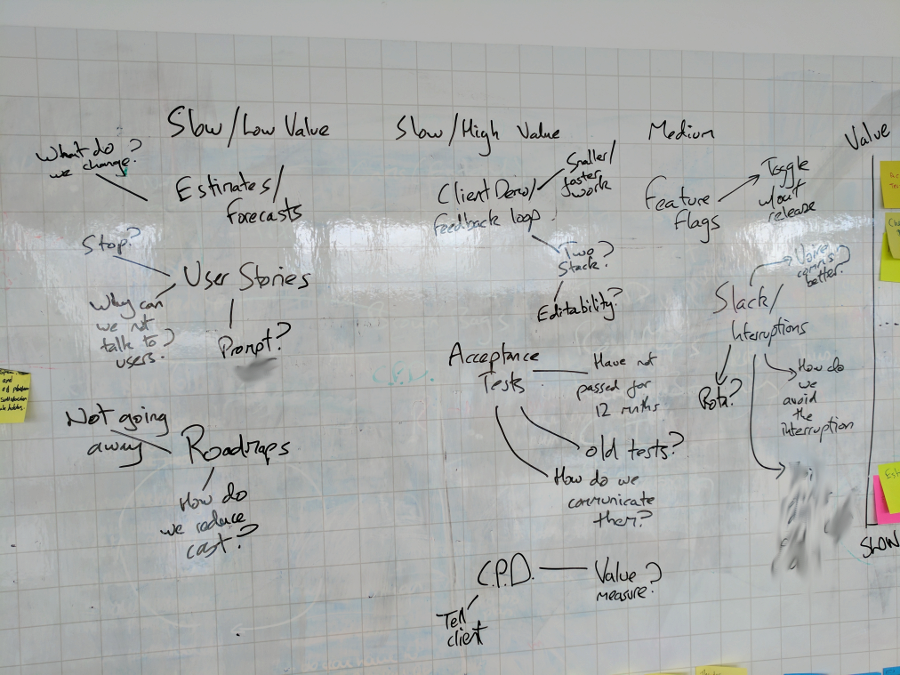 Slow/Low Value
What do
we change?
Estimates/
forecasts
Stop?
User Stories
Why can
we not
talk to
users?
Prompt?
Not going
away
Roadmaps
How do
we reduce
cost?
Slow/High Value
Client Demo/
feedback loop
Smaller/
faster
work
Two
Stack?
Editability?
Acceptance
Tests
Have not
passed for
12 mnths
old tests?
How do we
communicate
them?
C.P.D.
Value?
measure?
Tell
client
Medium
Feature
flags
Toggle
w/out
release
Slack/
Interruptions
Voice
comms
better?
Rota?
How do
we
avoid
the
interruption
Value
SLOW